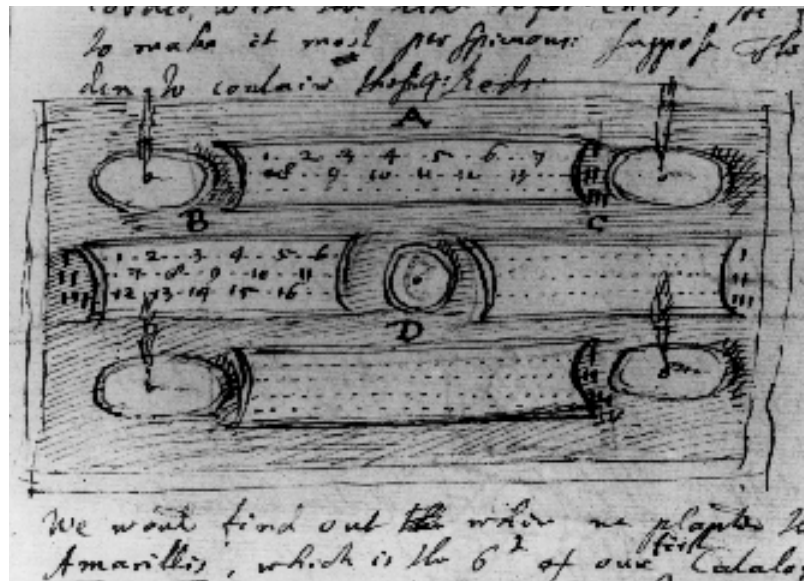 to make it most perspicuous: suppose the
den to contain these 4: beds:
A
1 2 3 4 5 6 7
8 9 10 11 12 13
I
II
III
B
C
I
II
III
1 2 3 4 5 6
7 8 9 10 11
12 13 14 15 16
I
II
III
D
I
II
III
IV
We would find out the where we planted
Amarillis, which is the 6 of our first Catalo